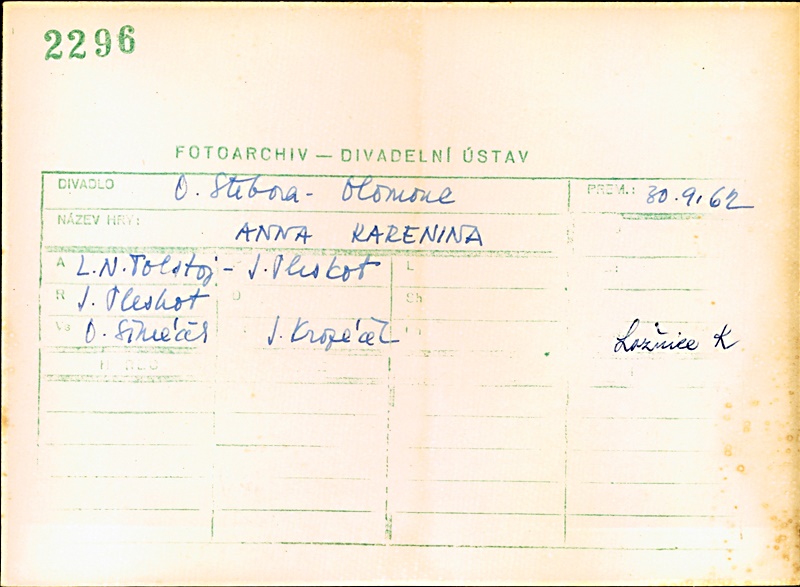 2296
FOTOARCHIV — DIVADELNÍ ÚSTAV
DIVADLO O. Stibora - Olomouc PREM.: 30.9.62
NÁZEV HRY: ANNA KARENINA
A L.N. Tolstoj - J. Pleskot L
R J. Pleskot O Sh
Vs O. Šimáček J. Kropáček
Ložnice K